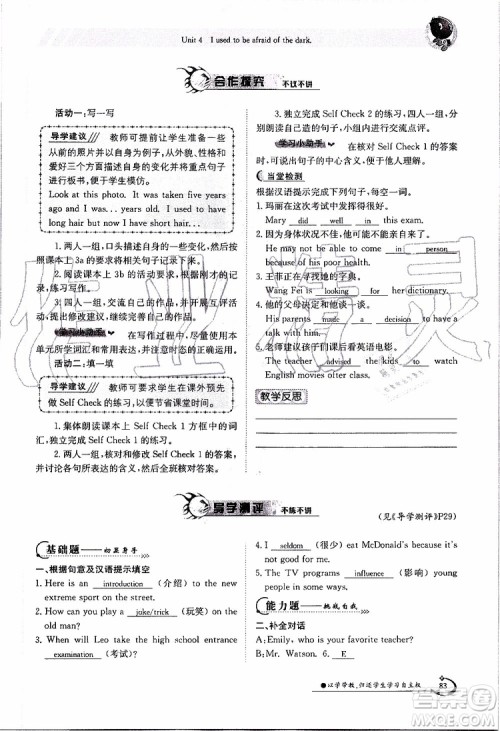 Unit 4 I used to be afraid of the dark.
合作探究 不议不讲
活动一:写一写
导学建议 教师可提前让学生准备一些
以前的照片并以自身为例子,从外貌、性格和
爱好三个方面描述自身的变化并将重点句子
写在黑板上,便于学生模仿。
Look at this photo. It was taken five years
ago and I was... years old. I used to have
long hair but now I have short hair...
1. 两人一组,口头描述自身变化,然后按
照课本上 3a 的要求将相关句子记录下来。
2. 阅读课本上 3b 的活动要求,根据刚才的记
录,练习写作。
学习小助手 在写作过程中,尽可能使用本
单元所学词汇和语法,并注意时态的正确运用。
活动二:填一填
导学建议 教师可要求学生在课外预先
做 Self Check 的练习,以便节省课堂时间。
1. 集体朗读课本上 Self Check 1 的单词。
2. 独立完成 Self Check 1 的练习,两人一
组,根据句意核对 Self Check 1 的答案,
并讨论各句所表达的含义,然后全班核对答案。
3. 独立完成 Self Check 2 的练习,四人一组,
分享自己所造的句子,小组内进行交流点评。
学习小助手 在核对 Self Check 1 的答案
时可提问句子的中心含义,加深理解。
当堂检测
根据汉语提示完成下列句子,每空一词。
1. 玛丽在这次考试中取得了好成绩。
Mary did well in this exam.
2. 因为身体状况不佳,他可能不会亲自来。
He may not be able to come in person
because of his poor health.
3. 王菲正在寻找她的字典。
Wang Fei is looking for her dictionary.
4. 他的父母决定和他谈一谈。
His parents made a decision to have a
talk with him.
5. 老师建议孩子们课后看英语电影。
The teacher advised the kids to watch
English movies after class.
教学反思
导学测评 不练不讲
(见《导学测评》P29)
基础题 初显身手
一、根据句意及汉语提示填空
1. Here is an introduction (介绍) to the new
extreme sport on the street.
2. How can you play a joke/trick (玩笑) on the
old man?
3. When will Leo take the high school entrance
examination (考试)?
4. I seldom (很少) eat McDonald's because it's
not good for me.
5. The TV programs influence (影响) young
people in some ways.
能力题 挑战自我
二、补全对话
A: Emily, who is your favorite teacher?
B: Mr. Watson. 6. E
以学学教,归还学生学习自主权 83